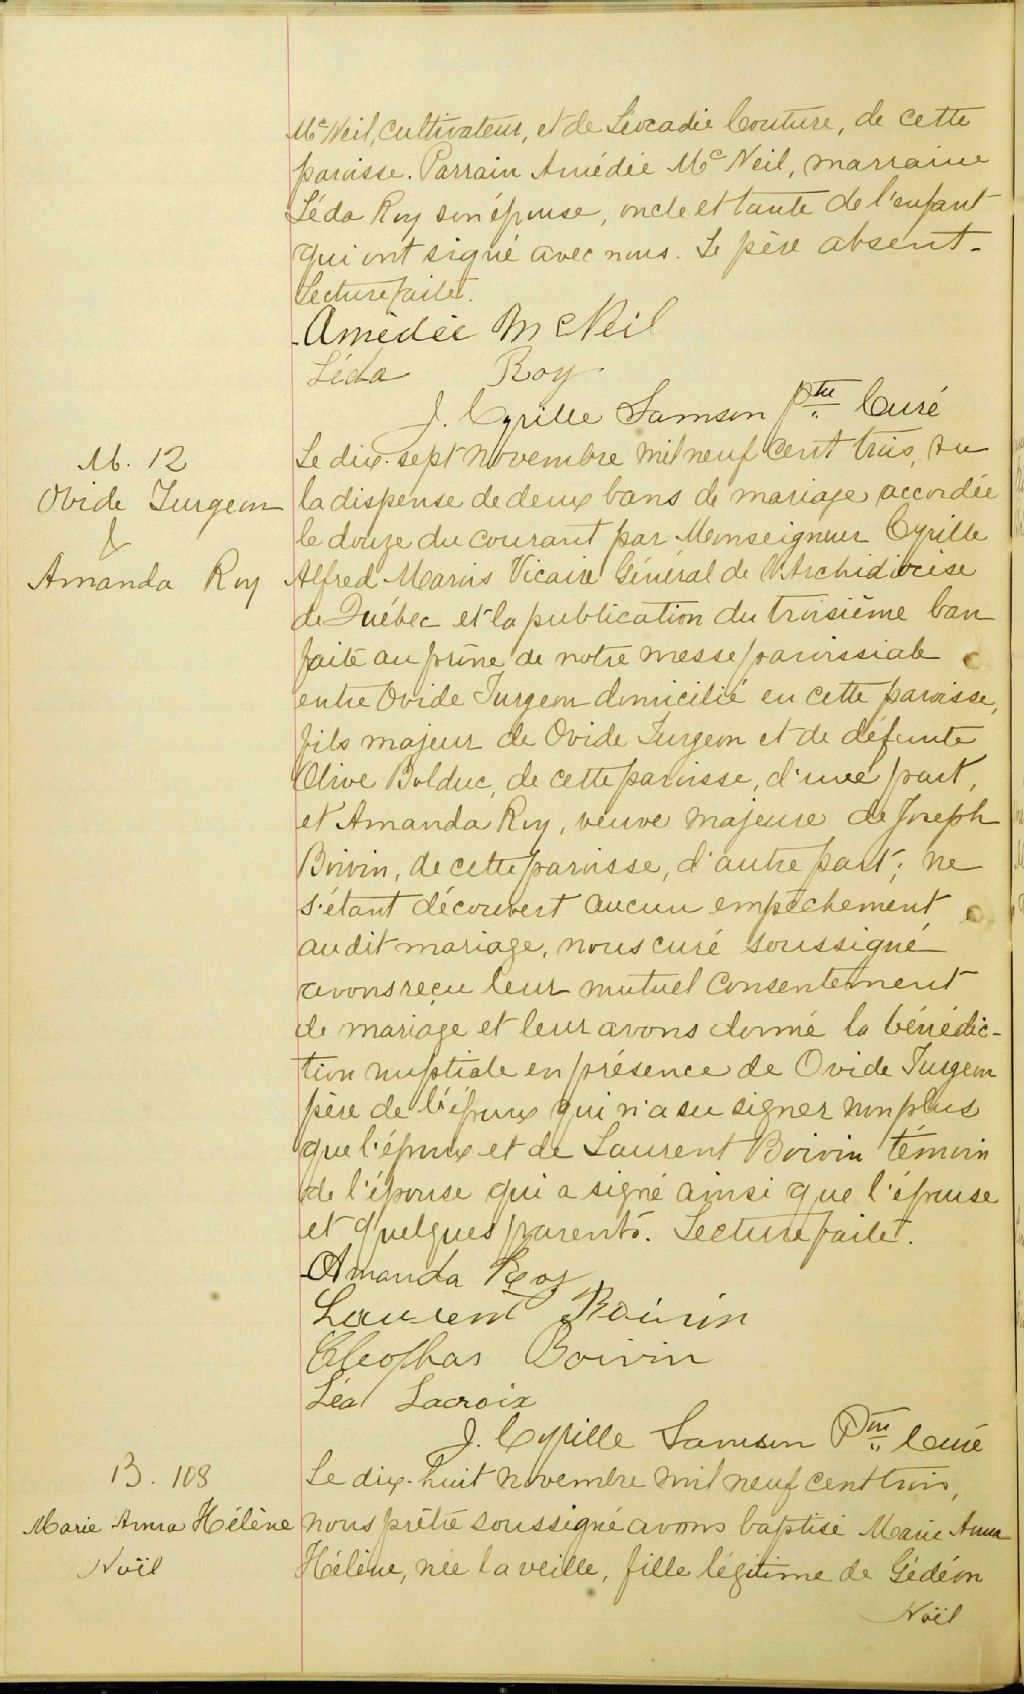 McNeil, cultivateur, et de Léocadie Couture, de cette
paroisse. Parrain Amédée McNeil, marraine
Léda Roy son épouse, oncle et tante de l'enfant
qui ont signé avec nous. Le père absent.
Lecture faite.
Amédée McNeil
Léda Roy
J. Cyrille Samson Ptre Curé
M. 12
Ovide Turgeon
&
Amanda Roy
Le dix-sept novembre mil neuf cent trois, vu
la dispense de deux bans de mariage accordée
le douze du courant par Monseigneur Cyrille
Alfred Marois Vicaire Général de l'Archidiocèse
de Québec et la publication du troisième ban
faite au prône de notre messe paroissiale
entre Ovide Turgeon domicilié en cette paroisse,
fils majeur de Ovide Turgeon et de défunte
Olive Bolduc, de cette paroisse, d'une part,
et Amanda Roy, veuve majeure de Joseph
Boivin, de cette paroisse, d'autre part; ne
s'étant découvert aucun empêchement
au dit mariage, nous curé soussigné
avons reçu leur mutuel consentement
de mariage et leur avons donné la bénédic-
tion nuptiale en présence de Ovide Turgeon
père de l'époux qui n'a su signer non plus
que l'époux et de Laurent Boivin témoin
de l'épouse qui a signé ainsi que l'épouse
et quelques parents. Lecture faite.
Amanda Roy
Laurent Boivin
Cleophas Boivin
Léa Lacroix
J. Cyrille Samson Ptre Curé
B. 108
Marie Anna Hélène
Noël
Le dix-huit novembre mil neuf cent trois,
nous prêtre soussigné avons baptisé Marie Anna
Hélène, née la veille, fille légitime de Gédéon
Noël